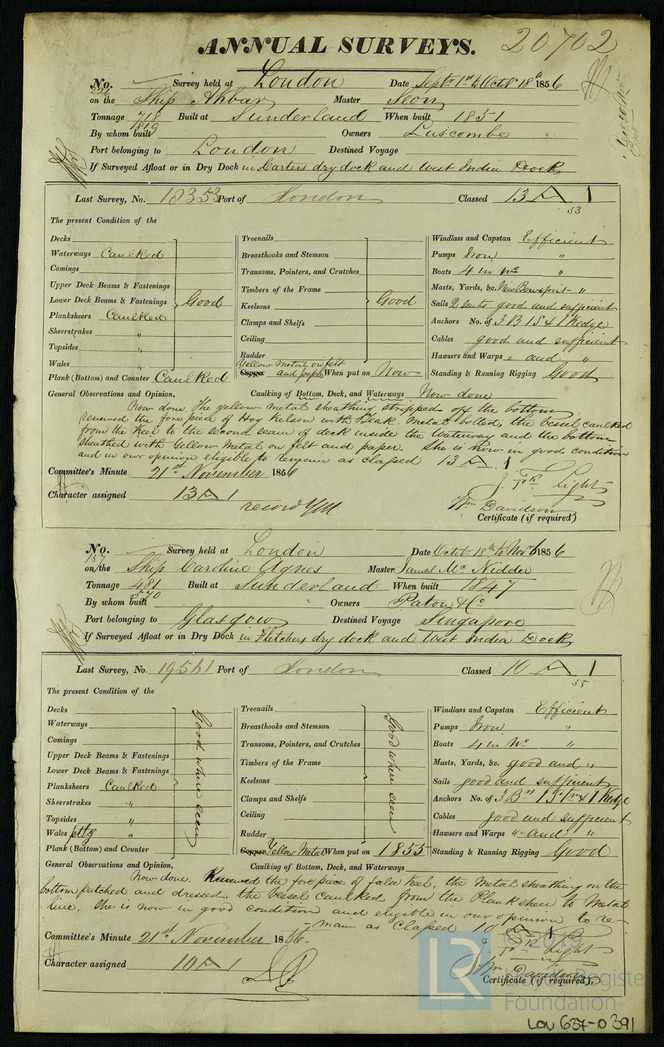 ANNUAL SURVEYS. 20702
No. 226 Survey held at London Date Sept 1st to Octobr 18th 1856
on the Ship Akbar Master Leon
Tonnage 718 Built at Sunderland When built 1851
819
By whom built Owners Luscombe
Port belonging to London Destined Voyage
If Surveyed Afloat or in Dry Dock in Carters dry dock and West India Dock
Last Survey, No. 18353 Port of London Classed 13 A 1
53
The present Condition of the
Decks
Waterways Caulked
Comings "
Upper Deck Beams & Fastenings
Lower Deck Beams & Fastenings Good
Planksheers Caulked
Sheerstrakes "
Topsides "
Wales "
Plank (Bottom) and Counter Caulked
Treenails
Breasthooks and Stemson
Transoms, Pointers, and Crutches
Timbers of the Frame
Keelsons Good
Clamps and Shelfs
Ceiling
Rudder
Yellow Metal on felt
Copper and paper When put on Now
Windlass and Capstan Efficient
Pumps Iron "
Boats 4 in No "
Masts, Yards, &c. New Bowsprit "
Sails 2 suits good and sufficient
Anchors No. of 3 B 1 S & 1 Kedge
Cables good and sufficient
Hawsers and Warps " and "
Standing & Running Rigging Good
General Observations and Opinion, Caulking of Bottom, Deck, and Waterways Now done
Now done. The yellow metal sheathing stripped off the bottom
renewed the fore piece of Hog Kelson with Teak. Metal bolted, the vessel caulked
from the Keel to the second seam of deck inside the Waterway and the bottom
sheathed with Yellow Metal on felt and paper. She is now in good condition
and in our opinion eligible to remain as classed 13 A 1
Committee's Minute 21st November 1856
Character assigned 13 A 1
record YM
Light
Wm Davidson
Certificate (if required)
No. 157 Survey held at London Date Octobr 18th to Nov 6 1856
on the Ship Caroline Agnes Master James Mc Nidder
Tonnage 481 Built at Sunderland When built 1847
570
By whom built Owners Paton & Co
Port belonging to Glasgow Destined Voyage Singapore
If Surveyed Afloat or in Dry Dock in Fletchers dry dock and West India Dock
Last Survey, No. 19561 Port of London Classed 10 A 1
55
The present Condition of the
Decks
Waterways
Comings
Upper Deck Beams & Fastenings
Lower Deck Beams & Fastenings
Planksheers Caulked
Sheerstrakes "
Topsides "
Wales ptly "
Plank (Bottom) and Counter
Good where seen
Treenails
Breasthooks and Stemson
Transoms, Pointers, and Crutches
Timbers of the Frame
Keelsons
Clamps and Shelfs
Ceiling
Rudder
Good where seen
Copper Yellow Metal When put on 1855
Windlass and Capstan Efficient
Pumps Iron "
Boats 4 in No "
Masts, Yards, &c. good and "
Sails good and sufficient
Anchors No. of 3 Br 1 Str & 1 Kedge
Cables good and sufficient
Hawsers and Warps " and "
Standing & Running Rigging Good
General Observations and Opinion, Caulking of Bottom, Deck, and Waterways
Now done. Renewed the fore piece of false keel, the metal sheathing on the
bottom patched and dressed, the vessel caulked from the Plank sheer to Metal
line. She is now in good condition and eligible in our opinion to re-
main as classed 10 A 1
Committee's Minute 21st November 1856.
Character assigned 10 A 1
Light
Wm Davidson
Certificate (if required).
LR
© 2019
Lloyd's Register
Foundation
LON 637-0391